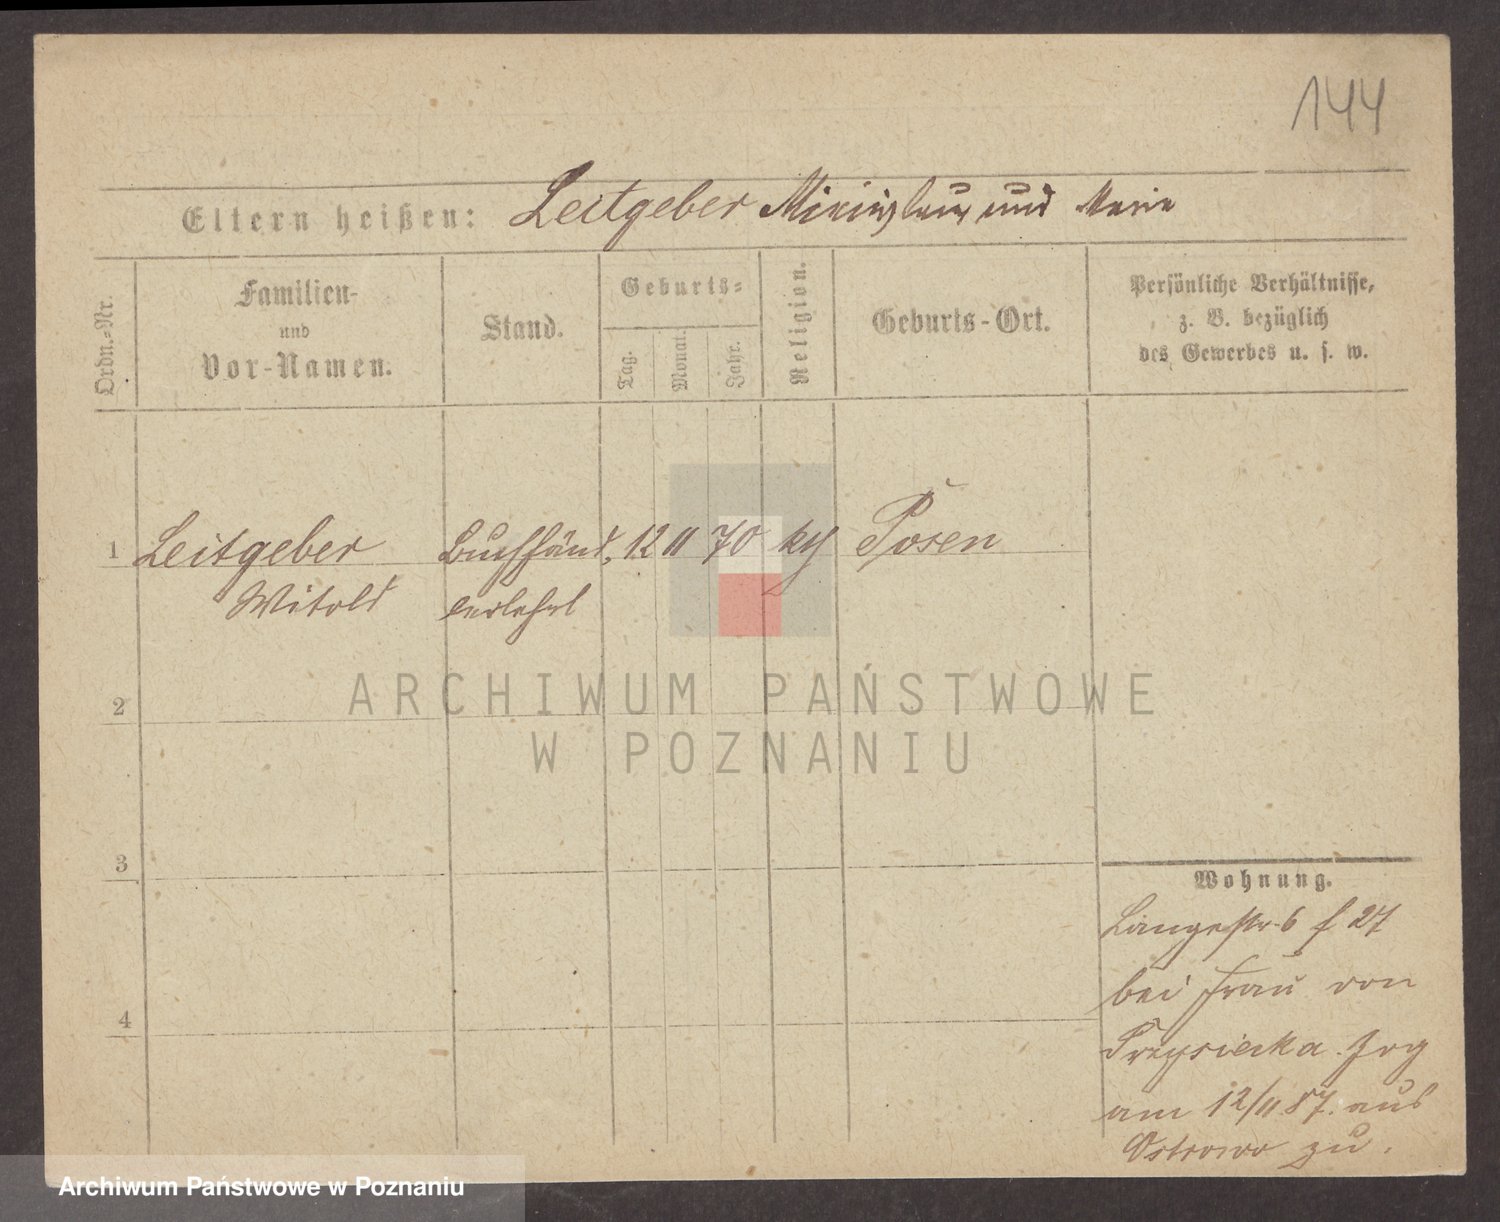 144
Eltern heißen: Leitgeber und Marie
Ordn.-Nr.
Familien-
und
Vor-Namen.
Stand.
Geburts-
Tag.
Monat.
Jahr.
Religion.
Geburts-Ort.
Persönliche Verhältnisse,
z. B. bezüglich
des Gewerbes u. s. w.
1 Leitgeber Buchhänd. 12 11 70 Posen
Witold
2
ARCHIWUM PAŃSTWOWE
W POZNANIU
3
4
Wohnung.
Langestr 6 27
bei Frau von
zog
am 12/11 87. aus
Ostrowo zu.
Archiwum Państwowe w Poznaniu